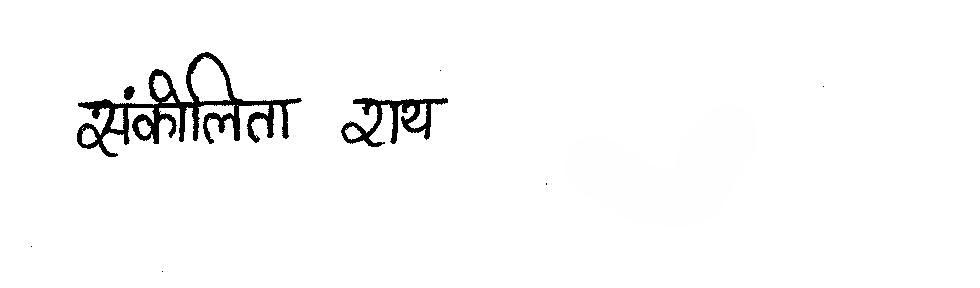 संकीलिता राय